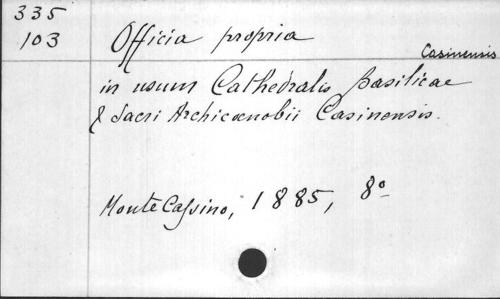 335
103
Officia propria
Casinensis
in usum Cathedralis Basilicae
& Sacri Archicœnobii Casinensis.
Monte Cassino, 1885, 8º